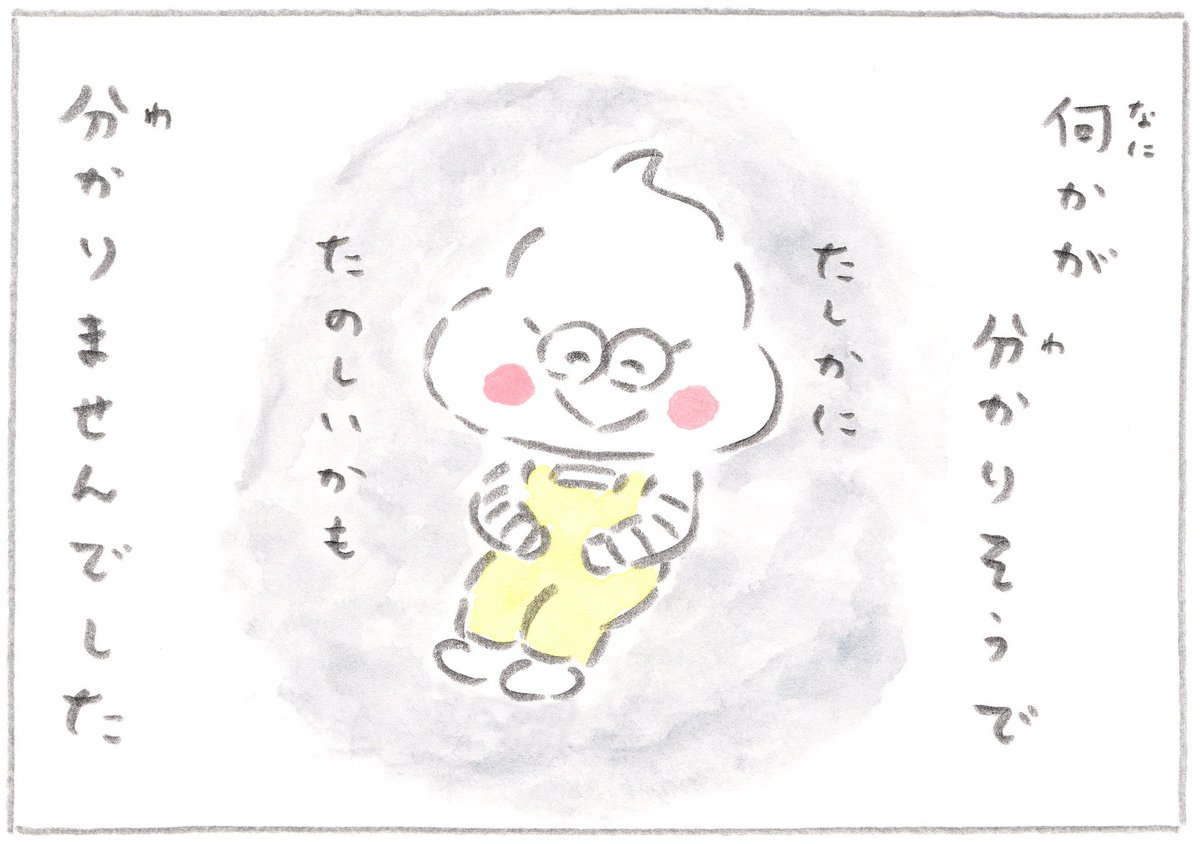 何かが
分かりそうで
たしかに
たのしいかも
分かりませんでした
なに
わ
わ